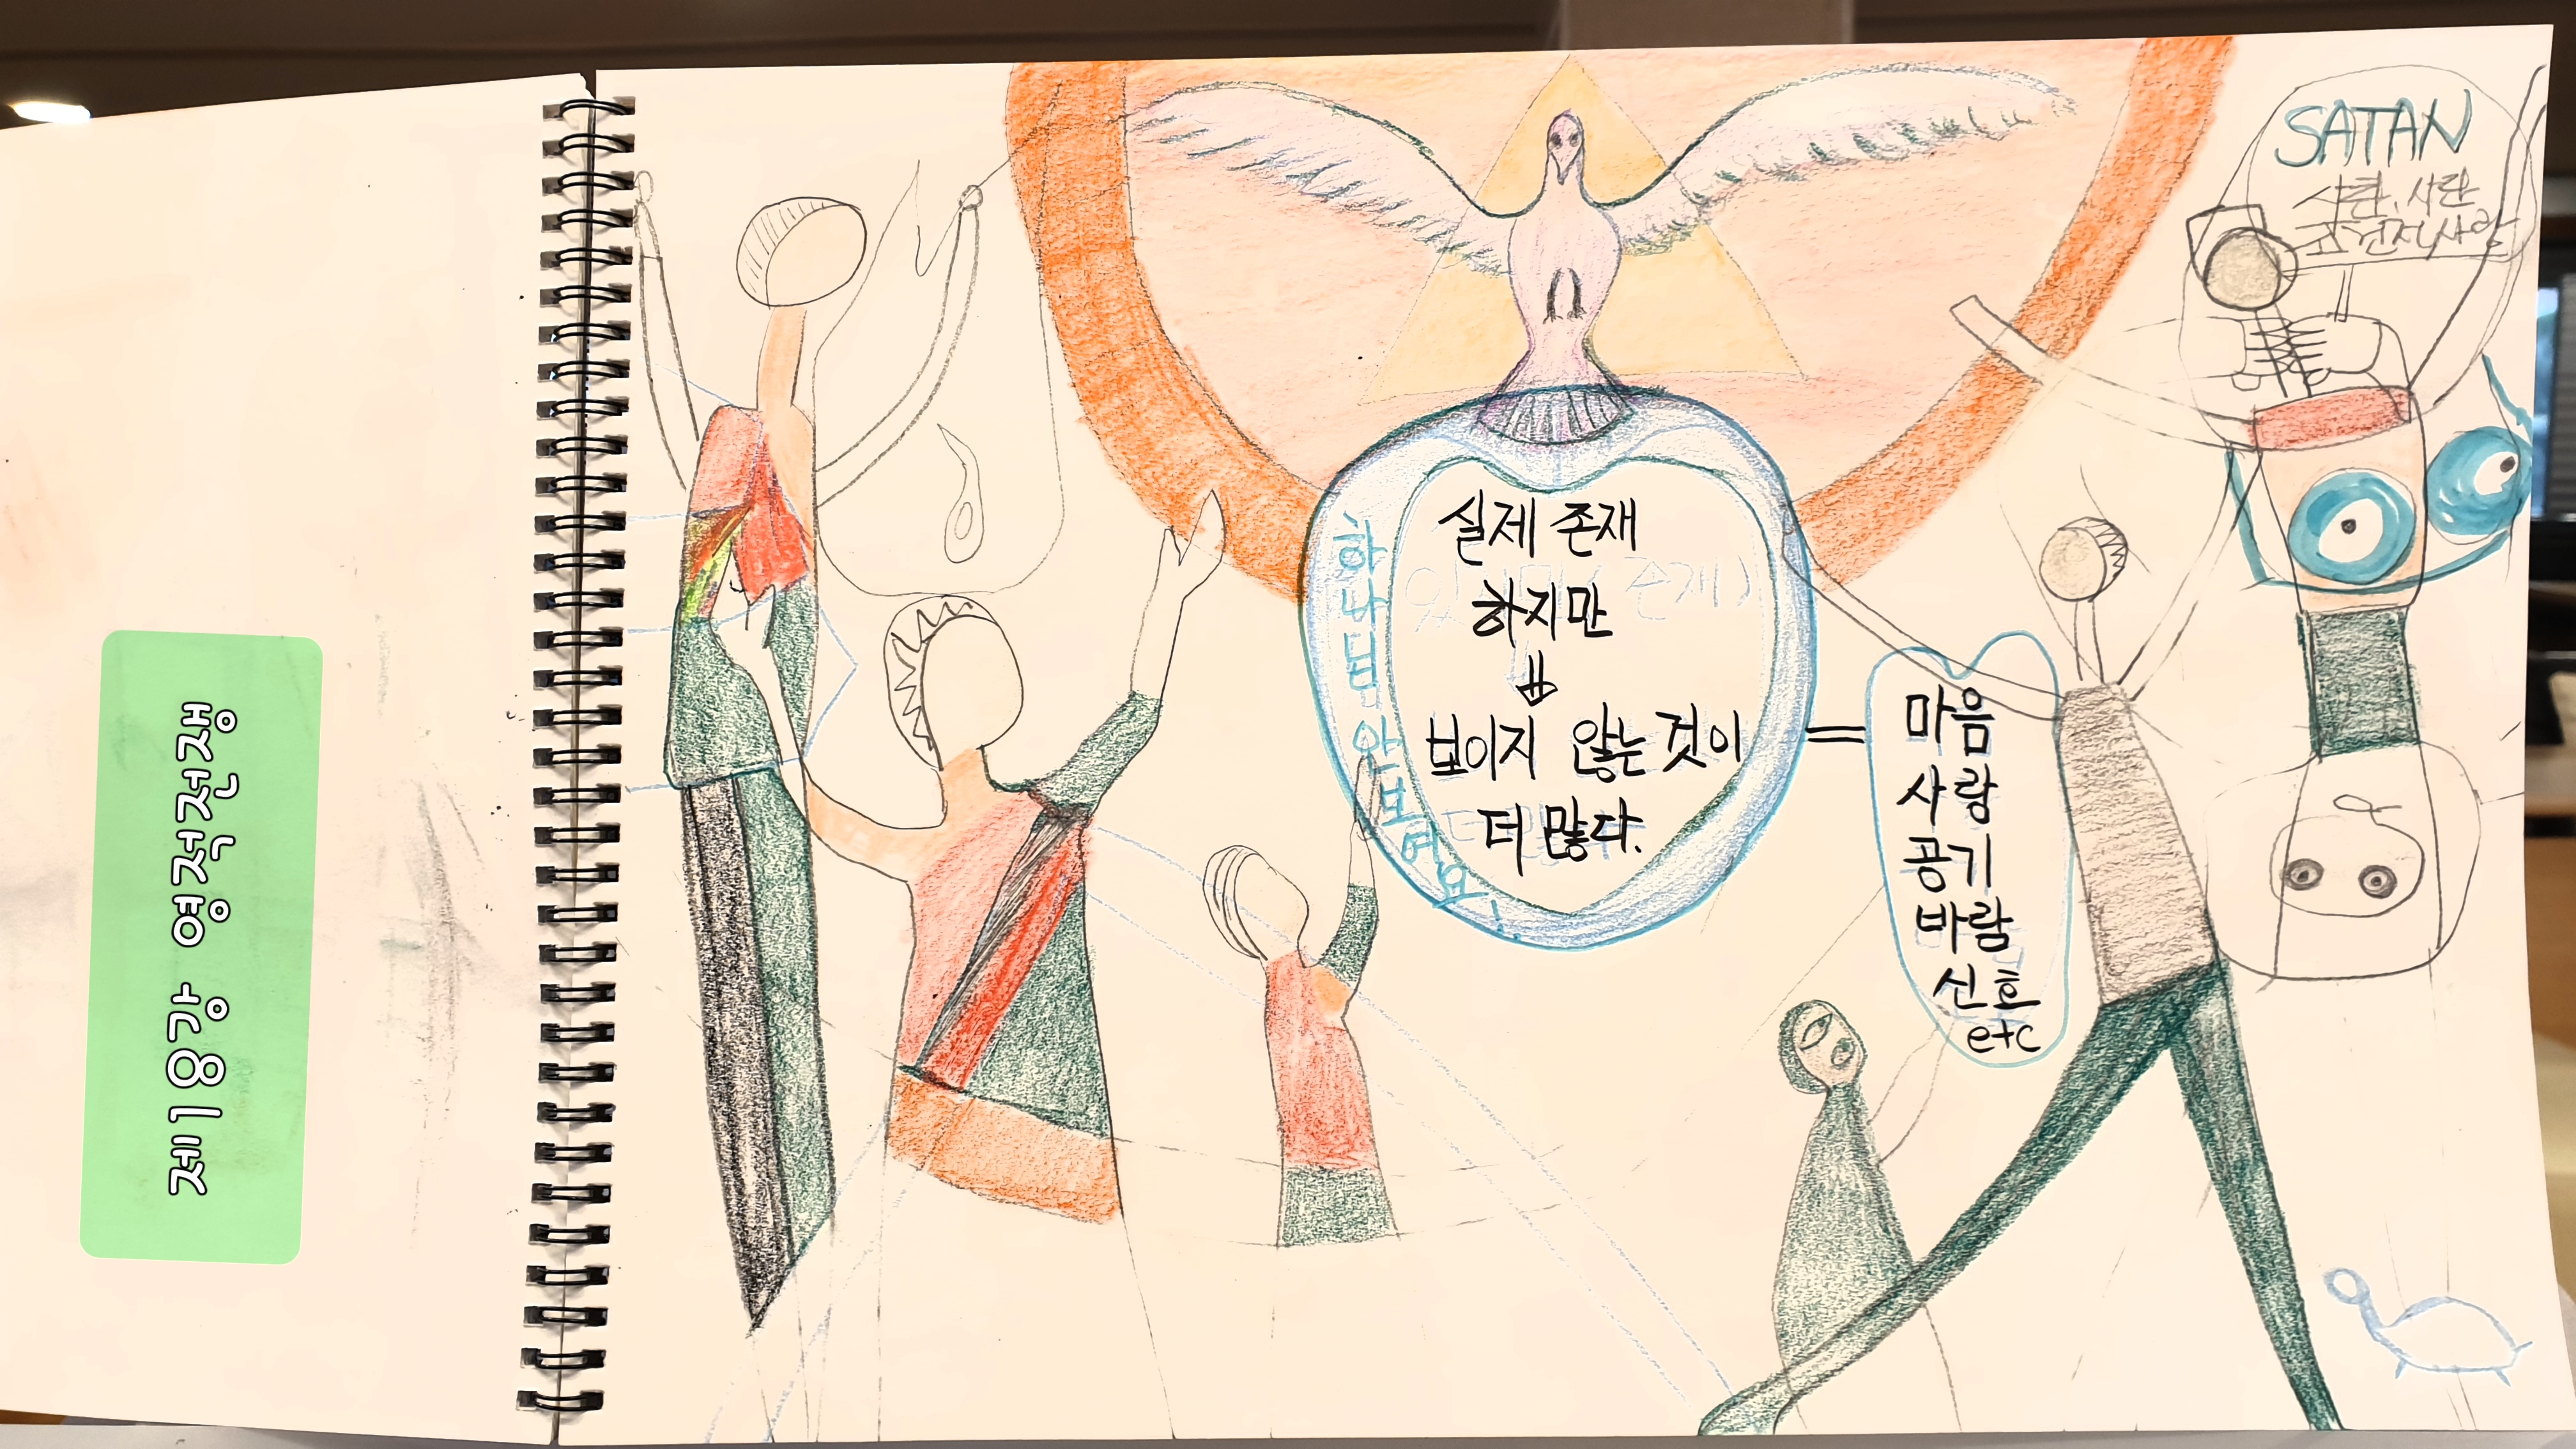 제18강 영적전쟁
SATAN
사탄, 사란
하나님 안보여요!
실제 존재
하지만
보이지 않는 것이
더 많다.
=
마음
사랑
공기
바람
신호
etc